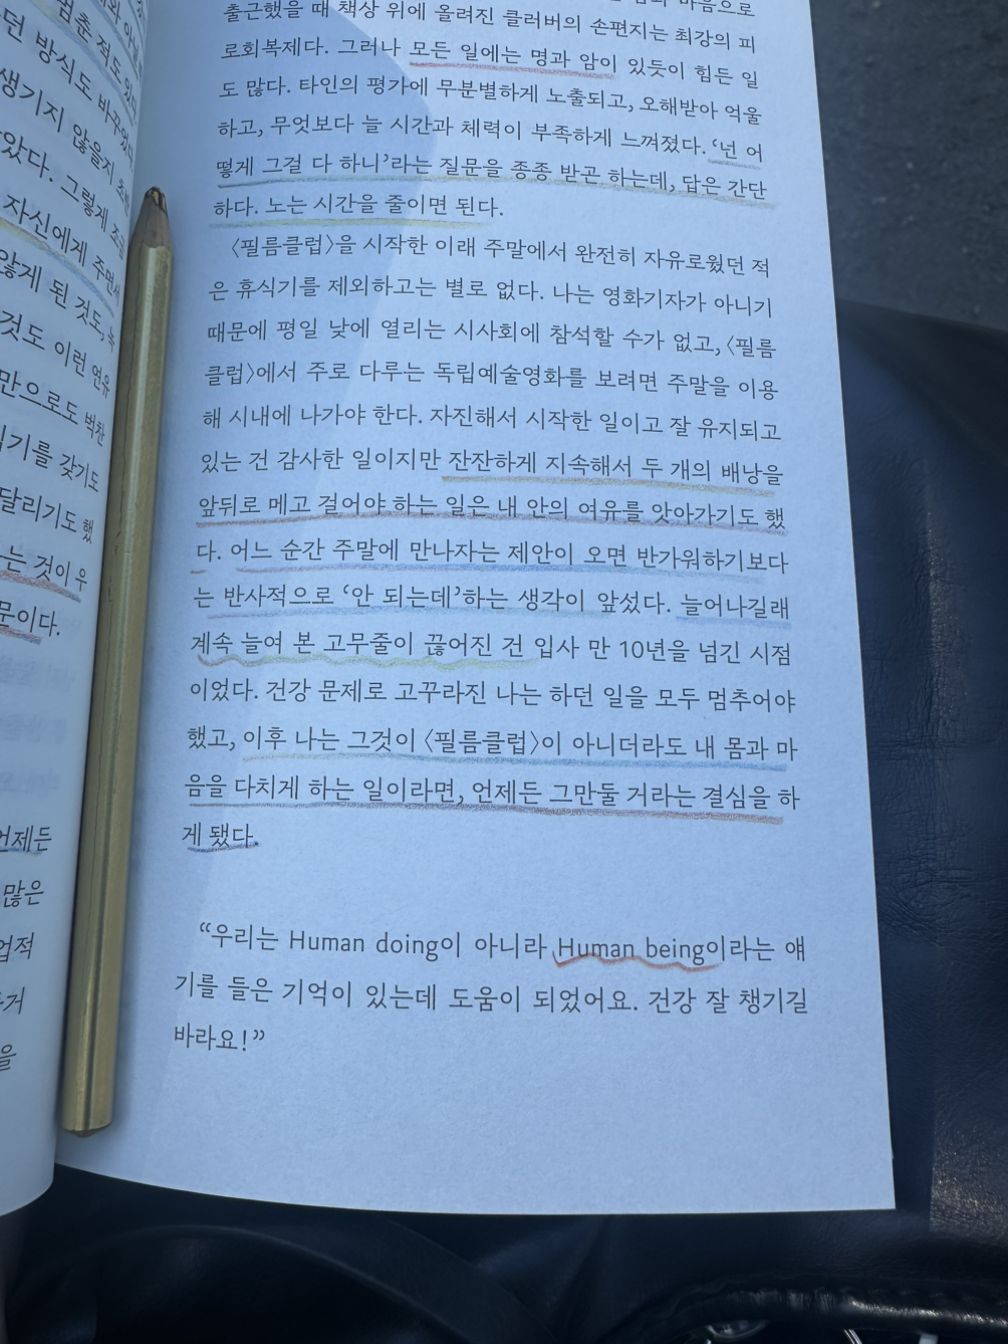 멈춘 적도 있다
던 방식도 바꾸었다
생기지 않을지
았다. 그렇게 조금
자신에게 주면서
않게 된 것도, 녹
것도 이런 연유
만으로도 벅찬
기를 갖기도
달리기도 했
는 것이 우
문이다.
언제든
많은
업적
을
출근했을 때 책상 위에 올려진 클러버의 손편지는 최강의 피
로회복제다. 그러나 모든 일에는 명과 암이 있듯이 힘든 일
도 많다. 타인의 평가에 무분별하게 노출되고, 오해받아 억울
하고, 무엇보다 늘 시간과 체력이 부족하게 느껴졌다. ‘넌 어
떻게 그걸 다 하니’라는 질문을 종종 받곤 하는데, 답은 간단
하다. 노는 시간을 줄이면 된다.
〈필름클럽〉을 시작한 이래 주말에서 완전히 자유로웠던 적
은 휴식기를 제외하고는 별로 없다. 나는 영화기자가 아니기
때문에 평일 낮에 열리는 시사회에 참석할 수가 없고, 〈필름
클럽〉에서 주로 다루는 독립예술영화를 보려면 주말을 이용
해 시내에 나가야 한다. 자진해서 시작한 일이고 잘 유지되고
있는 건 감사한 일이지만 잔잔하게 지속해서 두 개의 배낭을
앞뒤로 메고 걸어야 하는 일은 내 안의 여유를 앗아가기도 했
다. 어느 순간 주말에 만나자는 제안이 오면 반가워하기보다
는 반사적으로 ‘안 되는데’하는 생각이 앞섰다. 늘어나길래
계속 늘여 본 고무줄이 끊어진 건 입사 만 10년을 넘긴 시점
이었다. 건강 문제로 고꾸라진 나는 하던 일을 모두 멈추어야
했고, 이후 나는 그것이 〈필름클럽〉이 아니더라도 내 몸과 마
음을 다치게 하는 일이라면, 언제든 그만둘 거라는 결심을 하
게 됐다.
“우리는 Human doing이 아니라 Human being이라는 얘
기를 들은 기억이 있는데 도움이 되었어요. 건강 잘 챙기길
바라요!”